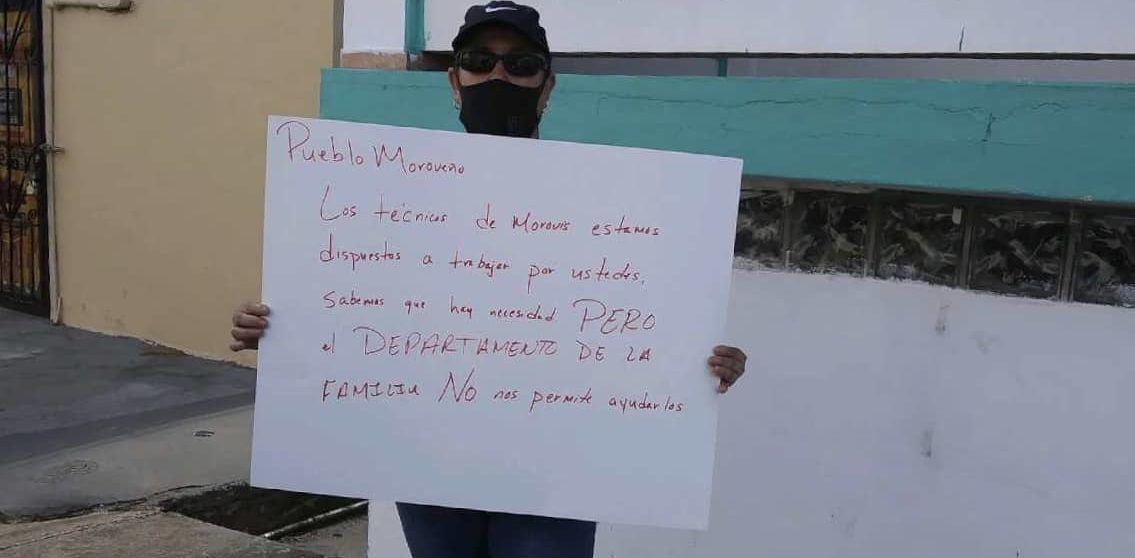 Pueblo Moroveño
Los técnicos de Morovis estamos
dispuestos a trabajar por ustedes.
Sabemos que hay necesidad PERO
el DEPARTAMENTO DE LA
FAMILIA NO nos permite ayudarlos